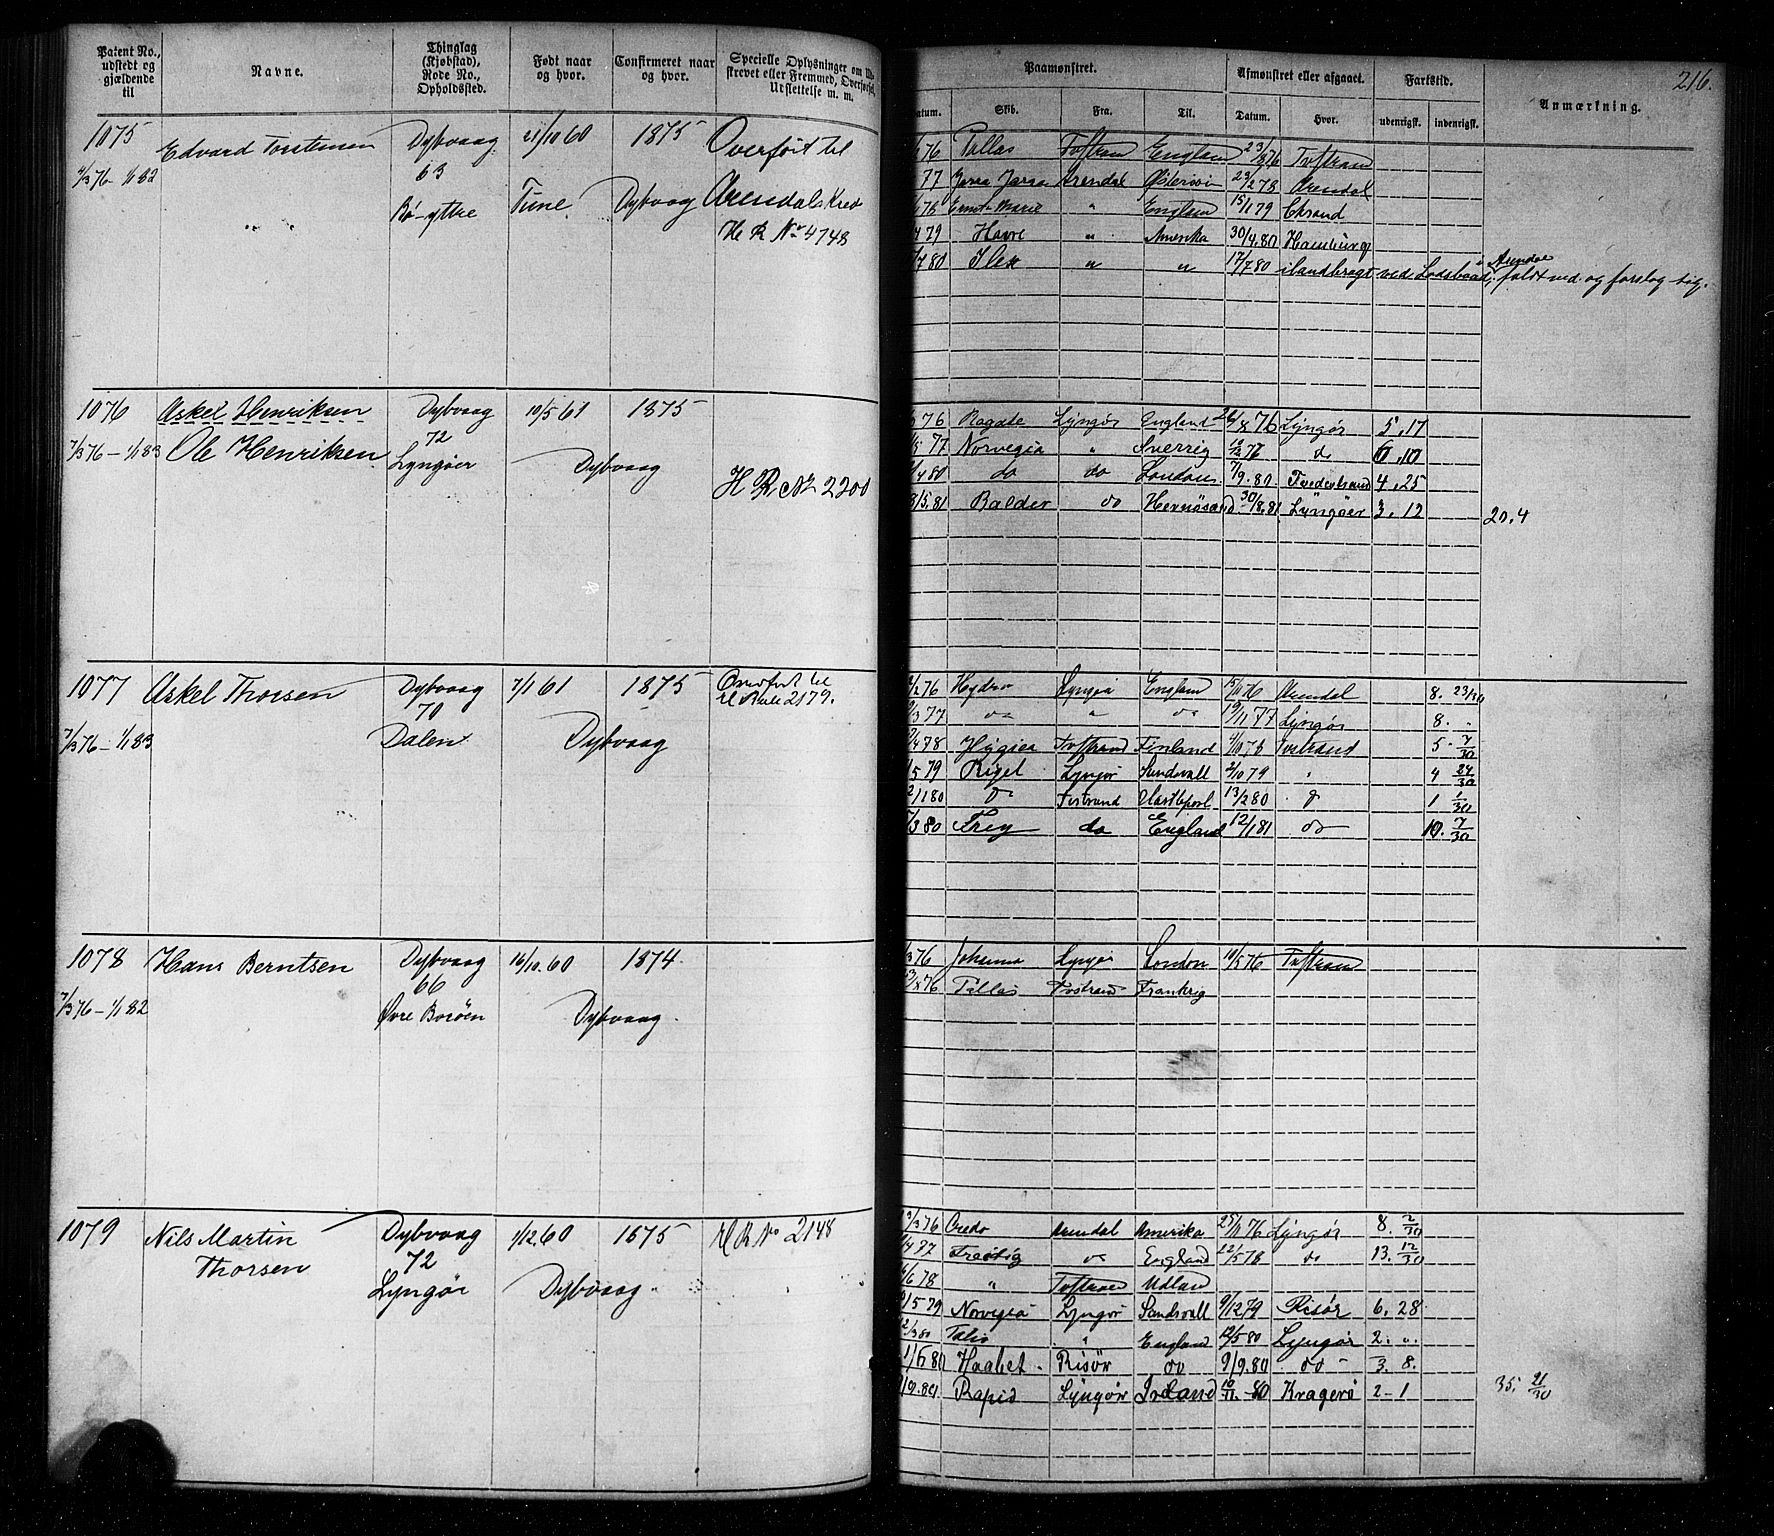 216.
Patent No., udstedt og gjældende til
Navne.
Thinglag (Kjøbstad), Rode No., Opholdssted.
Født naar og hvor.
Confirmeret naar og hvor.
Specielle Oplysninger om Ud-
skrevet eller Fremmed, Overførsel,
Udslettelse m. m.
Paamønstret.
Afmønstret eller afgaaet.
Fartstid.
Anmærkning.
Datum. Skib. Fra. Til. Datum. Hvor. udenrigsk. indenrigsk.
1075 Edvard Torstensen Dybvaag 21/10 60 1875 Overført til
4/3 76 - 1/1 82 63
Bö-ydtre Tune Dybvaag Arendals Kred
H R No 4748
76 Pallas Tvstrand England 23/8 76 Tvstrand
77 Arendal Østerrisø 23/2 78 Arendal
78 Ernst-Marie " England 15/1 79 Chrsand
79 Havre " Amerika 30/4.80 Hamburg
7 80 Ilex " " 17/7 80 ilandbragt ved Lodsbaad, Arendal faldt ned og forslog sig.
1076 Askel Henriksen Dybvaag 10/5 61 1875
7/3 76 - 1/1 83 Ole Henriksen 72
Lyngøer Dybvaag
H R No 2200
76 Lyngør England 26/8 76 Lyngør 5.17
77 Norvegia " Sverrig 10/12 76 do 6.10
4 80 do do London 7/9.80 Frederksand 4.25
8/5.81 Balder do Hernøsand 30/8.81 Lyngøer 3.12 20.4
1077 Askel Thorsen Dybvaag 7/1 61 1875 Overført til
70 H Rulle 2179.
7/3 76 - 1/1 83 Dalen Dybvaag
/2 76 Hydra Lyngør England 15/11 76 Arendal 8. 23/30
/3 77 do " do 19/11 77 Lyngør 8. "
/4 78 Hygiea Tvstrand Finland 4/10 78 Tvestrand 5. 7/30
/5 79 Rigel Lyngør Sundsvall 2/10 79 " 4 24/30
2/1 80 Do Tvstrand Hartlepool 13/2 80 do 1 1/30
/3 80 Frey do England 12/1 81 do 10. 7/30
1078 Hans Berntsen Dybvaag 16/10.60 1874.
66
7/3 76 - 1/1 82 Øvre Borøen Dybvaag.
/3 76 Johanna Lyngør London 10/5 76 Tvstrand
76 Pallas Tvstrand Frankrig
1079 Nils Martin Dybvaag 1/12.60 1875 H R No 2148
Thorsen 72
Lyngør Dybvaag.
/3 76 Credo Arendal Amerika 25/11 76 Lyngør 8. 2/30
/4 77 do England 22/5 78 do 13. 12/30
/6 78 " Tvstrand Udland
/5 79 Norvegia Lyngør Sundsvall 9/12 79 Risør 6. 28
2/3 80 " England 12/5 80 Lyngør 2. ".
1/6 80 Haabet. Risør do 9/9.80 do - 3. 8.
/9.80 Rapid Lyngør Irland 10/11 - 80 Kragerø 2 - 1 35. 21/30